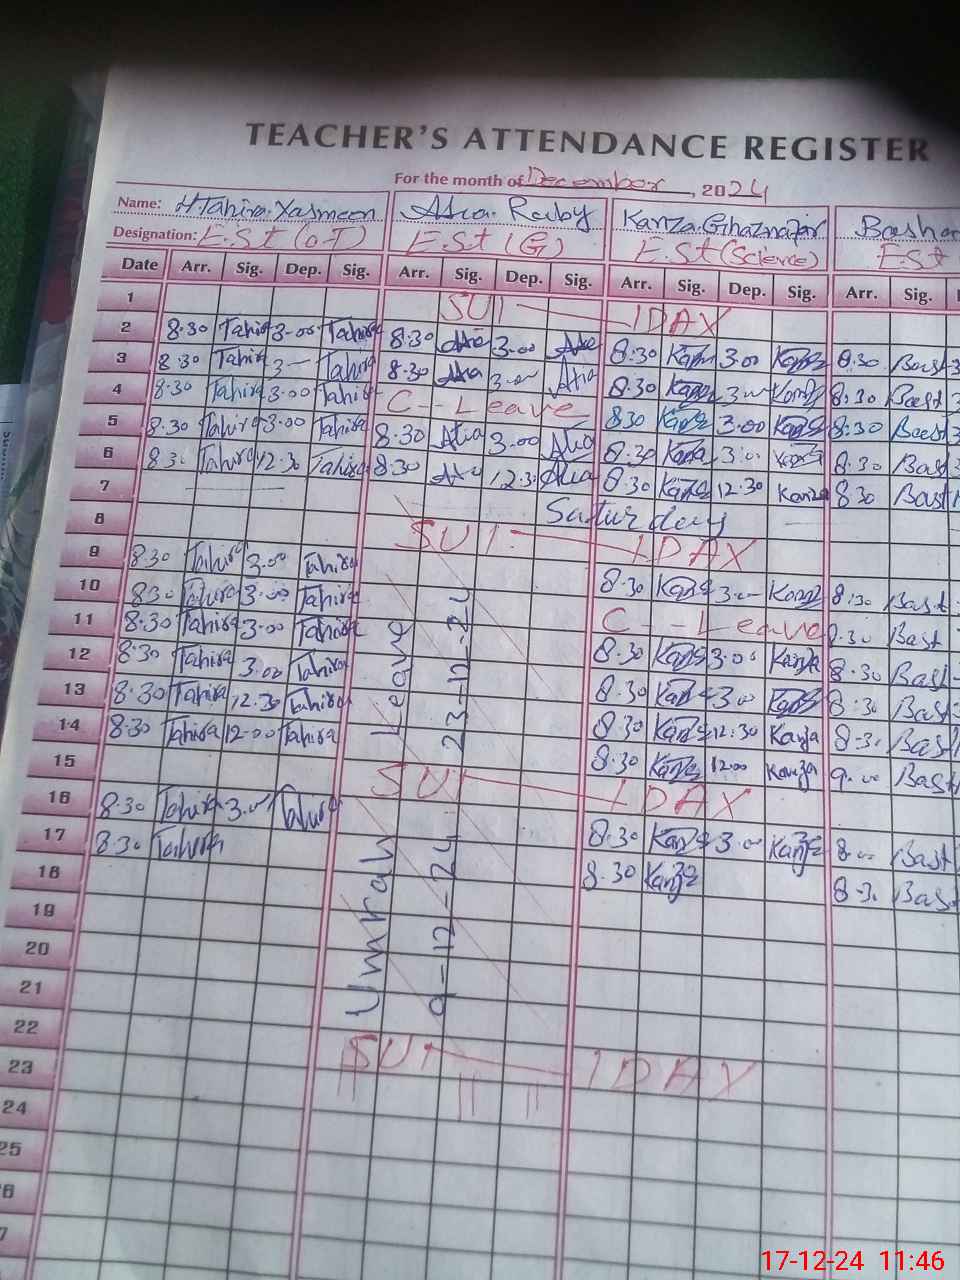 TEACHER'S ATTENDANCE REGISTER
For the month of December, 2024
Name: H Tahira Yasmeen Atia Ruby Kanza Ghaznafar
Designation: E.St (O-T) E.St (G) E.St (Science) E.St
Date Arr. Sig. Dep. Sig. Arr. Sig. Dep. Sig. Arr. Sig. Dep. Sig. Arr. Sig.
1 SUN DAY
2 8:30 Tahira 3-00 Tahira 8:30 Atia 3.00 Atia 8:30 Kanza 3.00 Kanza 8:30
3 8:30 Tahira 3- Tahira 8:30 Atia 3.00 Atia 8:30 Kanza 3.00 Kanza 8:30
4 8:30 Tahira 3.00 Tahira C--Leave 8:30 Kanza 3.00 Kanza 8:30
5 8:30 Tahira 3.00 Tahira 8:30 Atia 3.00 Atia 8:30 Kanza 3.00 Kanza 8:30
6 8:30 Tahira 12.30 Tahira 8:30 Atia 12.30 Atia 8:30 Kanza 12.30 Kanza 8:30
7 Saturday
8 SUN DAY
9 8:30 Tahira 3.00 Tahira 8:30 Kanza 3.00 Kanza 8:30
10 8:30 Tahira 3.00 Tahira C--Leave 8:30
11 8:30 Tahira 3.00 Tahira 8:30 Kanza 3.00 Kanza 8:30
12 8:30 Tahira 3.00 Tahira 8:30 Kanza 3.00 Kanza 8:30
13 8:30 Tahira 12.30 Tahira 8:30 Kanza 12:30 Kanza 8:30
14 8:30 Tahira 12-00 Tahira 8:30 Kanza 12:00 Kanza 9.00
15 SUN DAY
16 8:30 Tahira 3.00 Tahira 8:30 Kanza 3.00 Kanza 8:00
17 8:30 Tahira 8:30 Kanza 8:30
18
19
20
21
22 SUN DAY
23
24
25
Umrah Leave
9-12-24 23-12-24
17-12-24 11:46